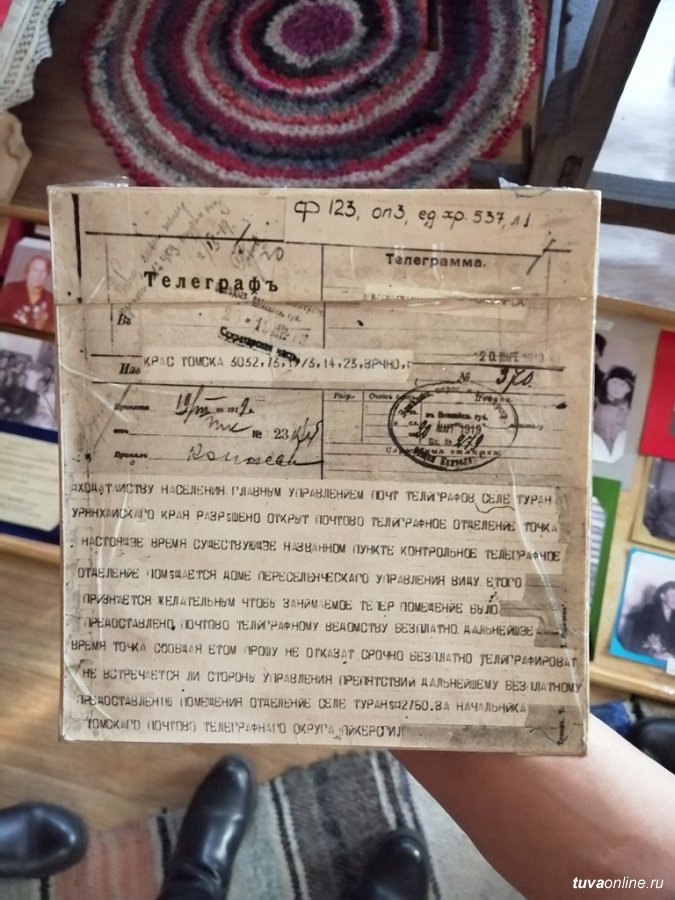 Ф 123, оп3, ед хр. 537, л1.
Телеграфъ
Телеграмма.
Въ
Секретарская часть
20 МАР. 1919
Изъ КРАС ТОМСКА 3032,
14,23, ВРЧНО,
№ 370.
Разр.
Принята 19/III
№ 23
Принялъ
МАР 1919
АХОДАТАЙСТВУ НАСЕЛЕНИЯ ГЛАВНЫМ УПРАВЛЕНИЕМ ПОЧТ ТЕЛИГРАФОВ СЕЛЕ ТУРАН
УРЯНХАЙСКАГО КРАЯ РАЗРЕШЕНО ОТКРЫТ ПОЧТОВО ТЕЛИГРАФНОЕ ОТДЕЛЕНИЕ ТОЧКА
НАСТОЯЩЕЕ ВРЕМЯ СУЩЕСТВУЮЩЕЕ НАЗВАННОМ ПУНКТЕ КОНТРОЛЬНОЕ ТЕЛЕГРАФНОЕ
ОТДЕЛЕНИЕ ПОМЕЩАЕТСЯ ДОМЕ ПЕРЕСЕЛЕНЧЕСКАГО УПРАВЛЕНИЯ ВИДУ ЕТОГО
ПРИЗНАЕТСЯ ЖЕЛАТЕЛЬНЫМ ЧТОБЫ ЗАНИМАЕМОЕ ТЕПЕР ПОМЕЩЕНИЕ БЫЛО
ПРЕДОСТАВЛЕНО, ПОЧТОВО ТЕЛИГРАФНОМУ ВЕДОМСТВУ БЕЗПЛАТНО. ДАЛЬНЕЙШЕЕ
ВРЕМЯ ТОЧКА СООБЩАЯ ЕТОМ ПРОШУ НЕ ОТКАЗАТ СРОЧНО БЕЗПЛАТНО ТЕЛИГРАФИРОВАТ
НЕ ВСТРЕЧАЕТСЯ ЛИ СТОРОНЫ УПРАВЛЕНИЯ ПРЕПЯТСТВИЙ ДАЛЬНЕЙШЕМУ БЕЗПЛАТНОМУ
ПРЕДОСТАВЛЕНИЮ ПОМЕЩЕНИЯ ОТДЕЛЕНИЕ СЕЛЕ ТУРАН 2750. ЗА НАЧАЛЬНИКА
ТОМСКАГО ПОЧТОВО ТЕЛЕГРАФНАГО ОКРУГА
tuvaonline.ru